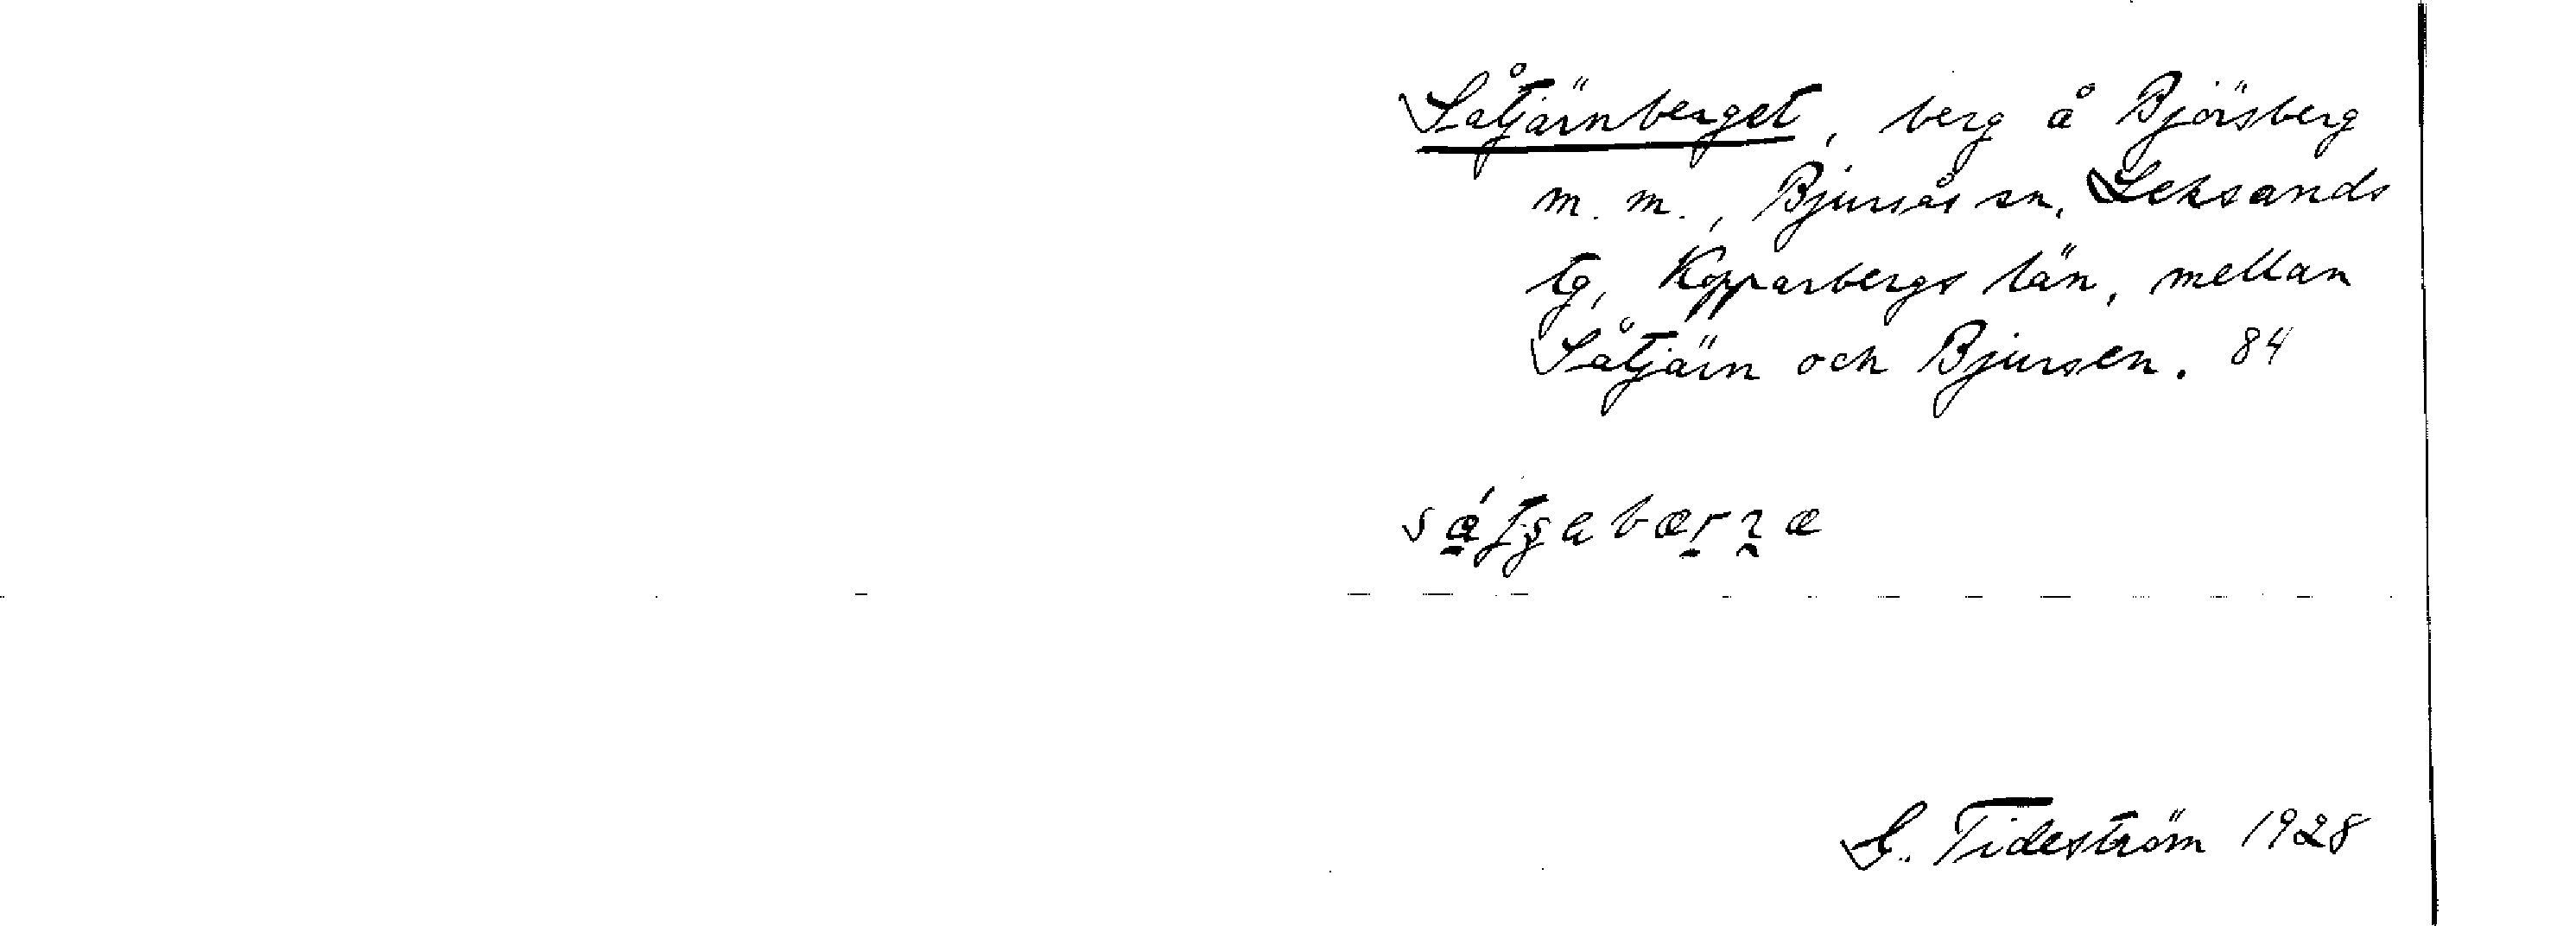 Såtjärnberget, berg å Björsberg
m. m., Bjursås sn, Leksands
tg, Kopparbergs län, mellan
Såtjärn och Bjursen. 84
G. Tideström 1928